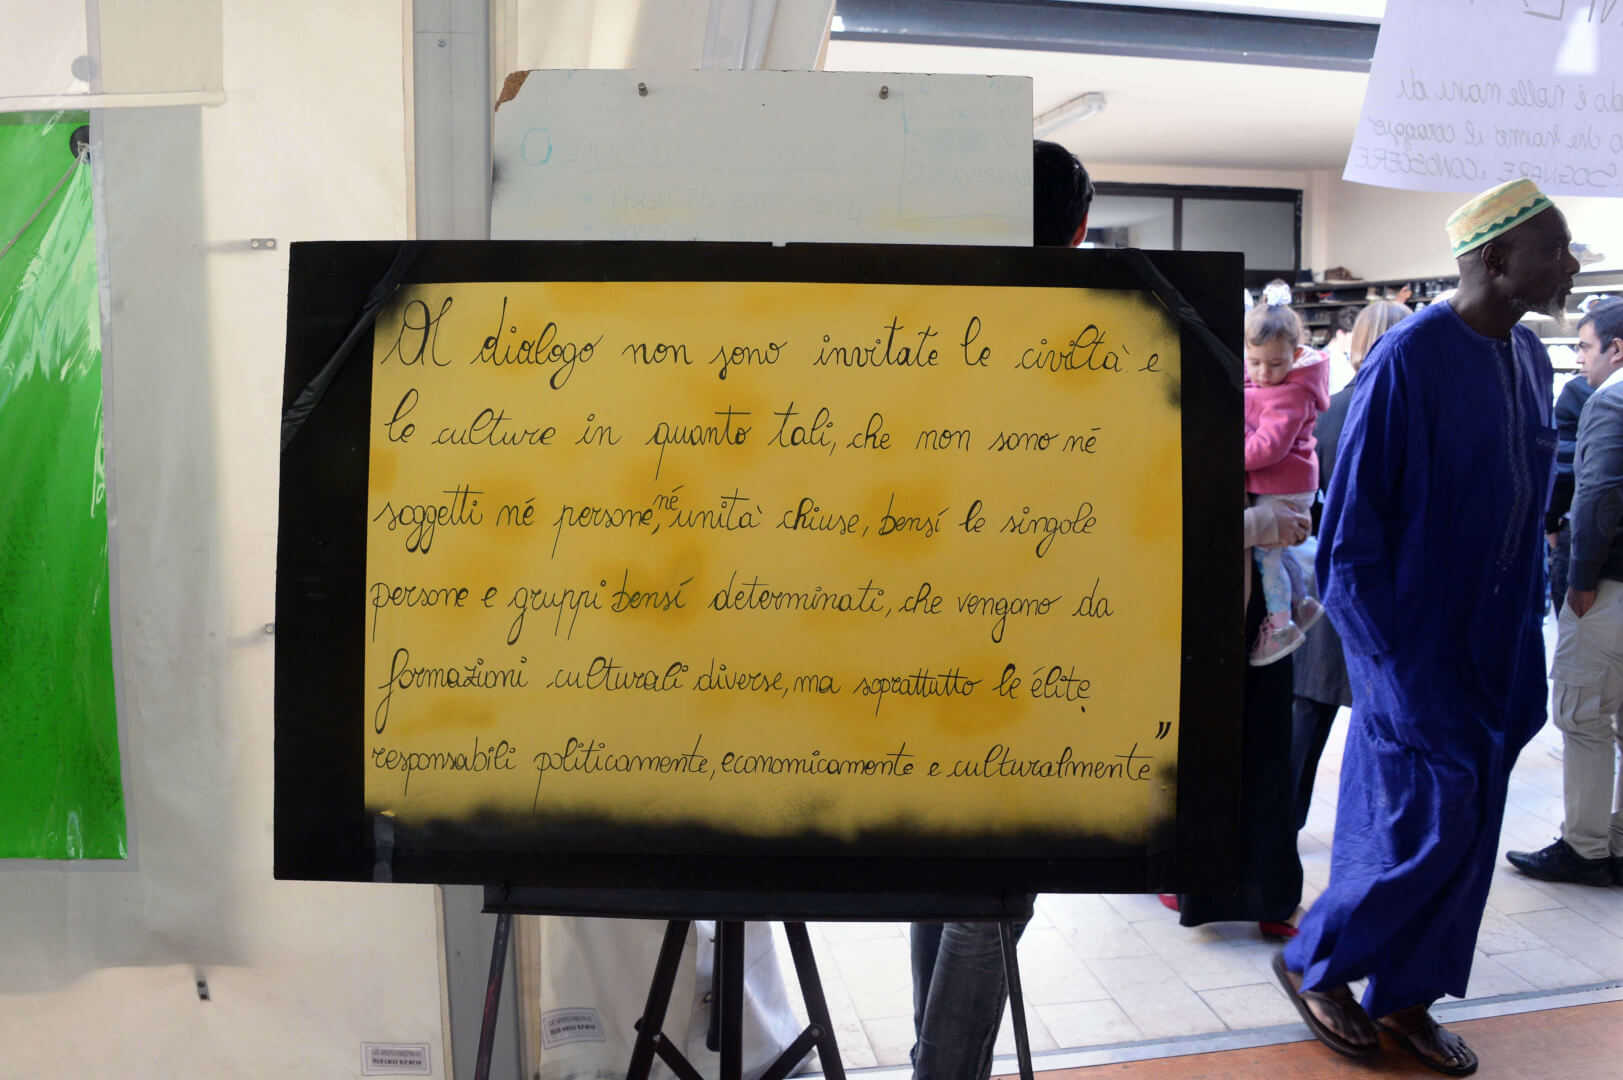 Al dialogo non sono invitate le civiltà e
le culture in quanto tali, che non sono né
soggetti né persone, né unità chiuse, bensí le singole
persone e gruppi bensí determinati, che vengono da
formazioni culturali diverse, ma soprattutto le élite
responsabili politicamente, economicamente e culturalmente"
è nelle mani di
che hanno il coraggio
SOGNARE, CONOSCERE